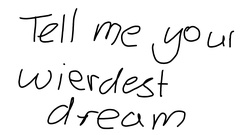 Tell me your
wierdest
dream